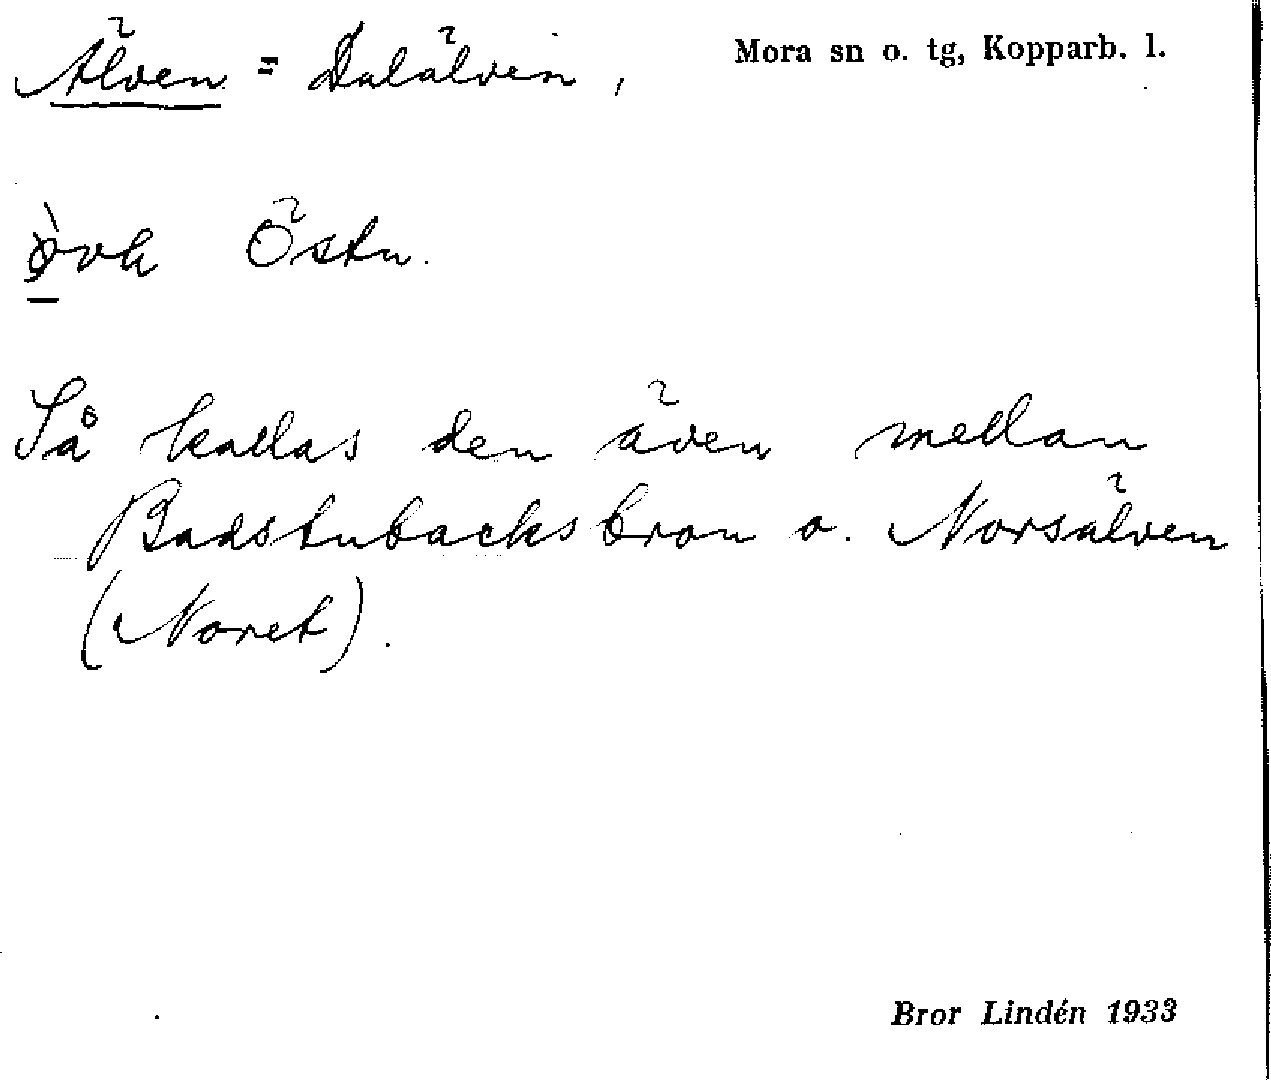 Älven = Dalälven,
Mora sn o. tg, Kopparb. l.
Östn.
Så kallas den även mellan
Badstubacksbron o. Norsälven
(Noret).
Bror Lindén 1933